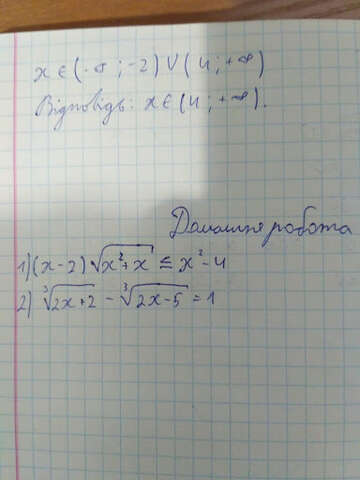 x ∈ (-∞; -2) ∪ (4; +∞)
Відповідь: x ∈ (4; +∞).
Домашня робота
1) (x-2)√(x²+x) ≤ x²-4
2) ∛(2x+2) - ∛(2x-5) = 1